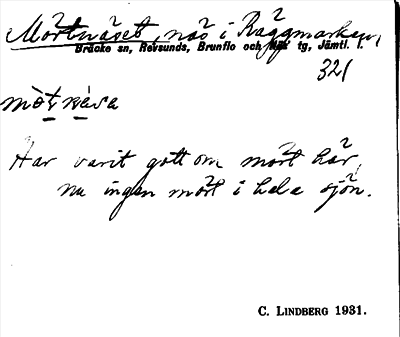 Mörtnäset, näs i Räggmarken,
Bräcke sn, Revsunds, Brunflo och Näs tg, Jämtl. l.
321
Har varit gott om mört här,
nu ingen mört i hela sjön.
C. LINDBERG 1931.